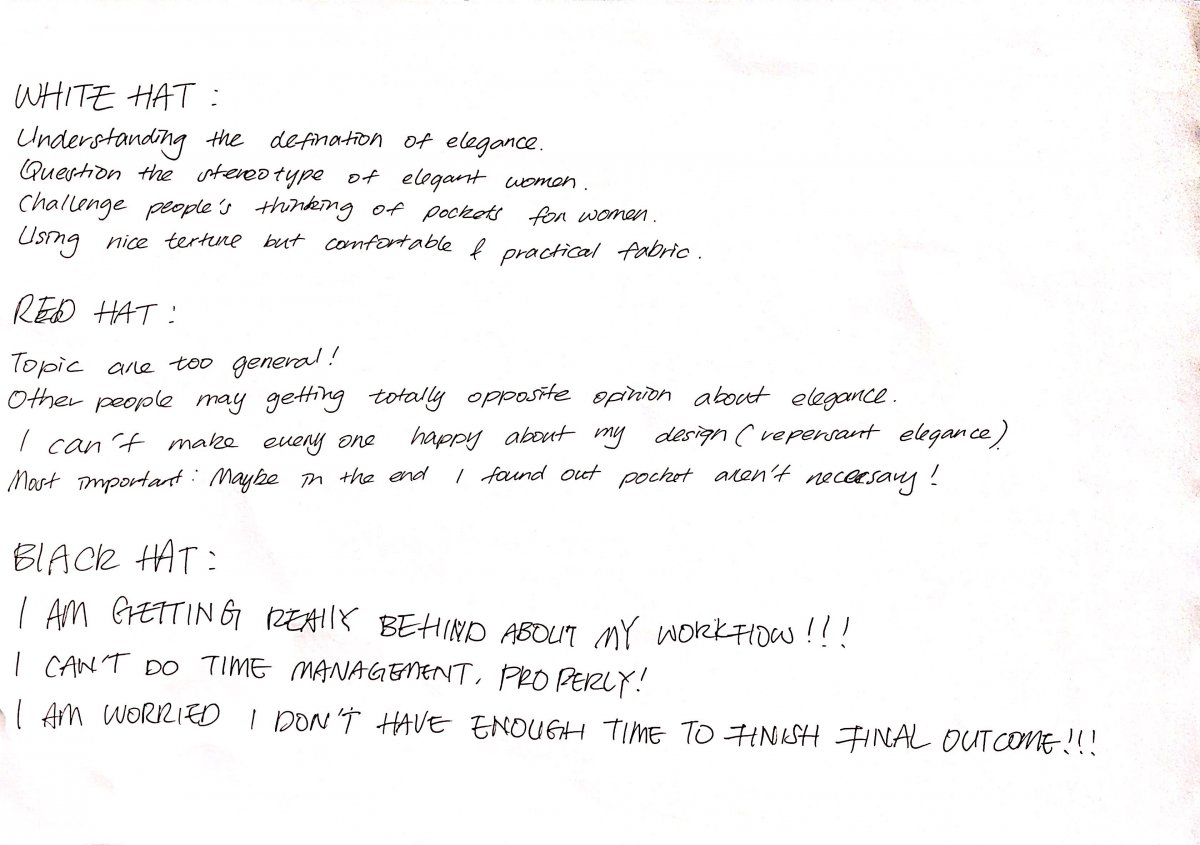 WHITE HAT :
Understanding the defination of elegance.
Question the stereotype of elegant women.
Challenge people's thinking of pockets for women.
Using nice texture but comfortable & practical fabric.
RED HAT :
Topic are too general!
Other people may getting totally opposite opinion about elegance.
I can't make everyone happy about my design (repersant elegance)
Most important : Maybe in the end I found out pocket aren't necessary!
BLACK HAT :
I AM GETTING REALLY BEHIND ABOUT MY WORKFLOW!!!
I CAN'T DO TIME MANAGEMENT, PROPERLY!
I AM WORRIED I DON'T HAVE ENOUGH TIME TO FINISH FINAL OUTCOME!!!